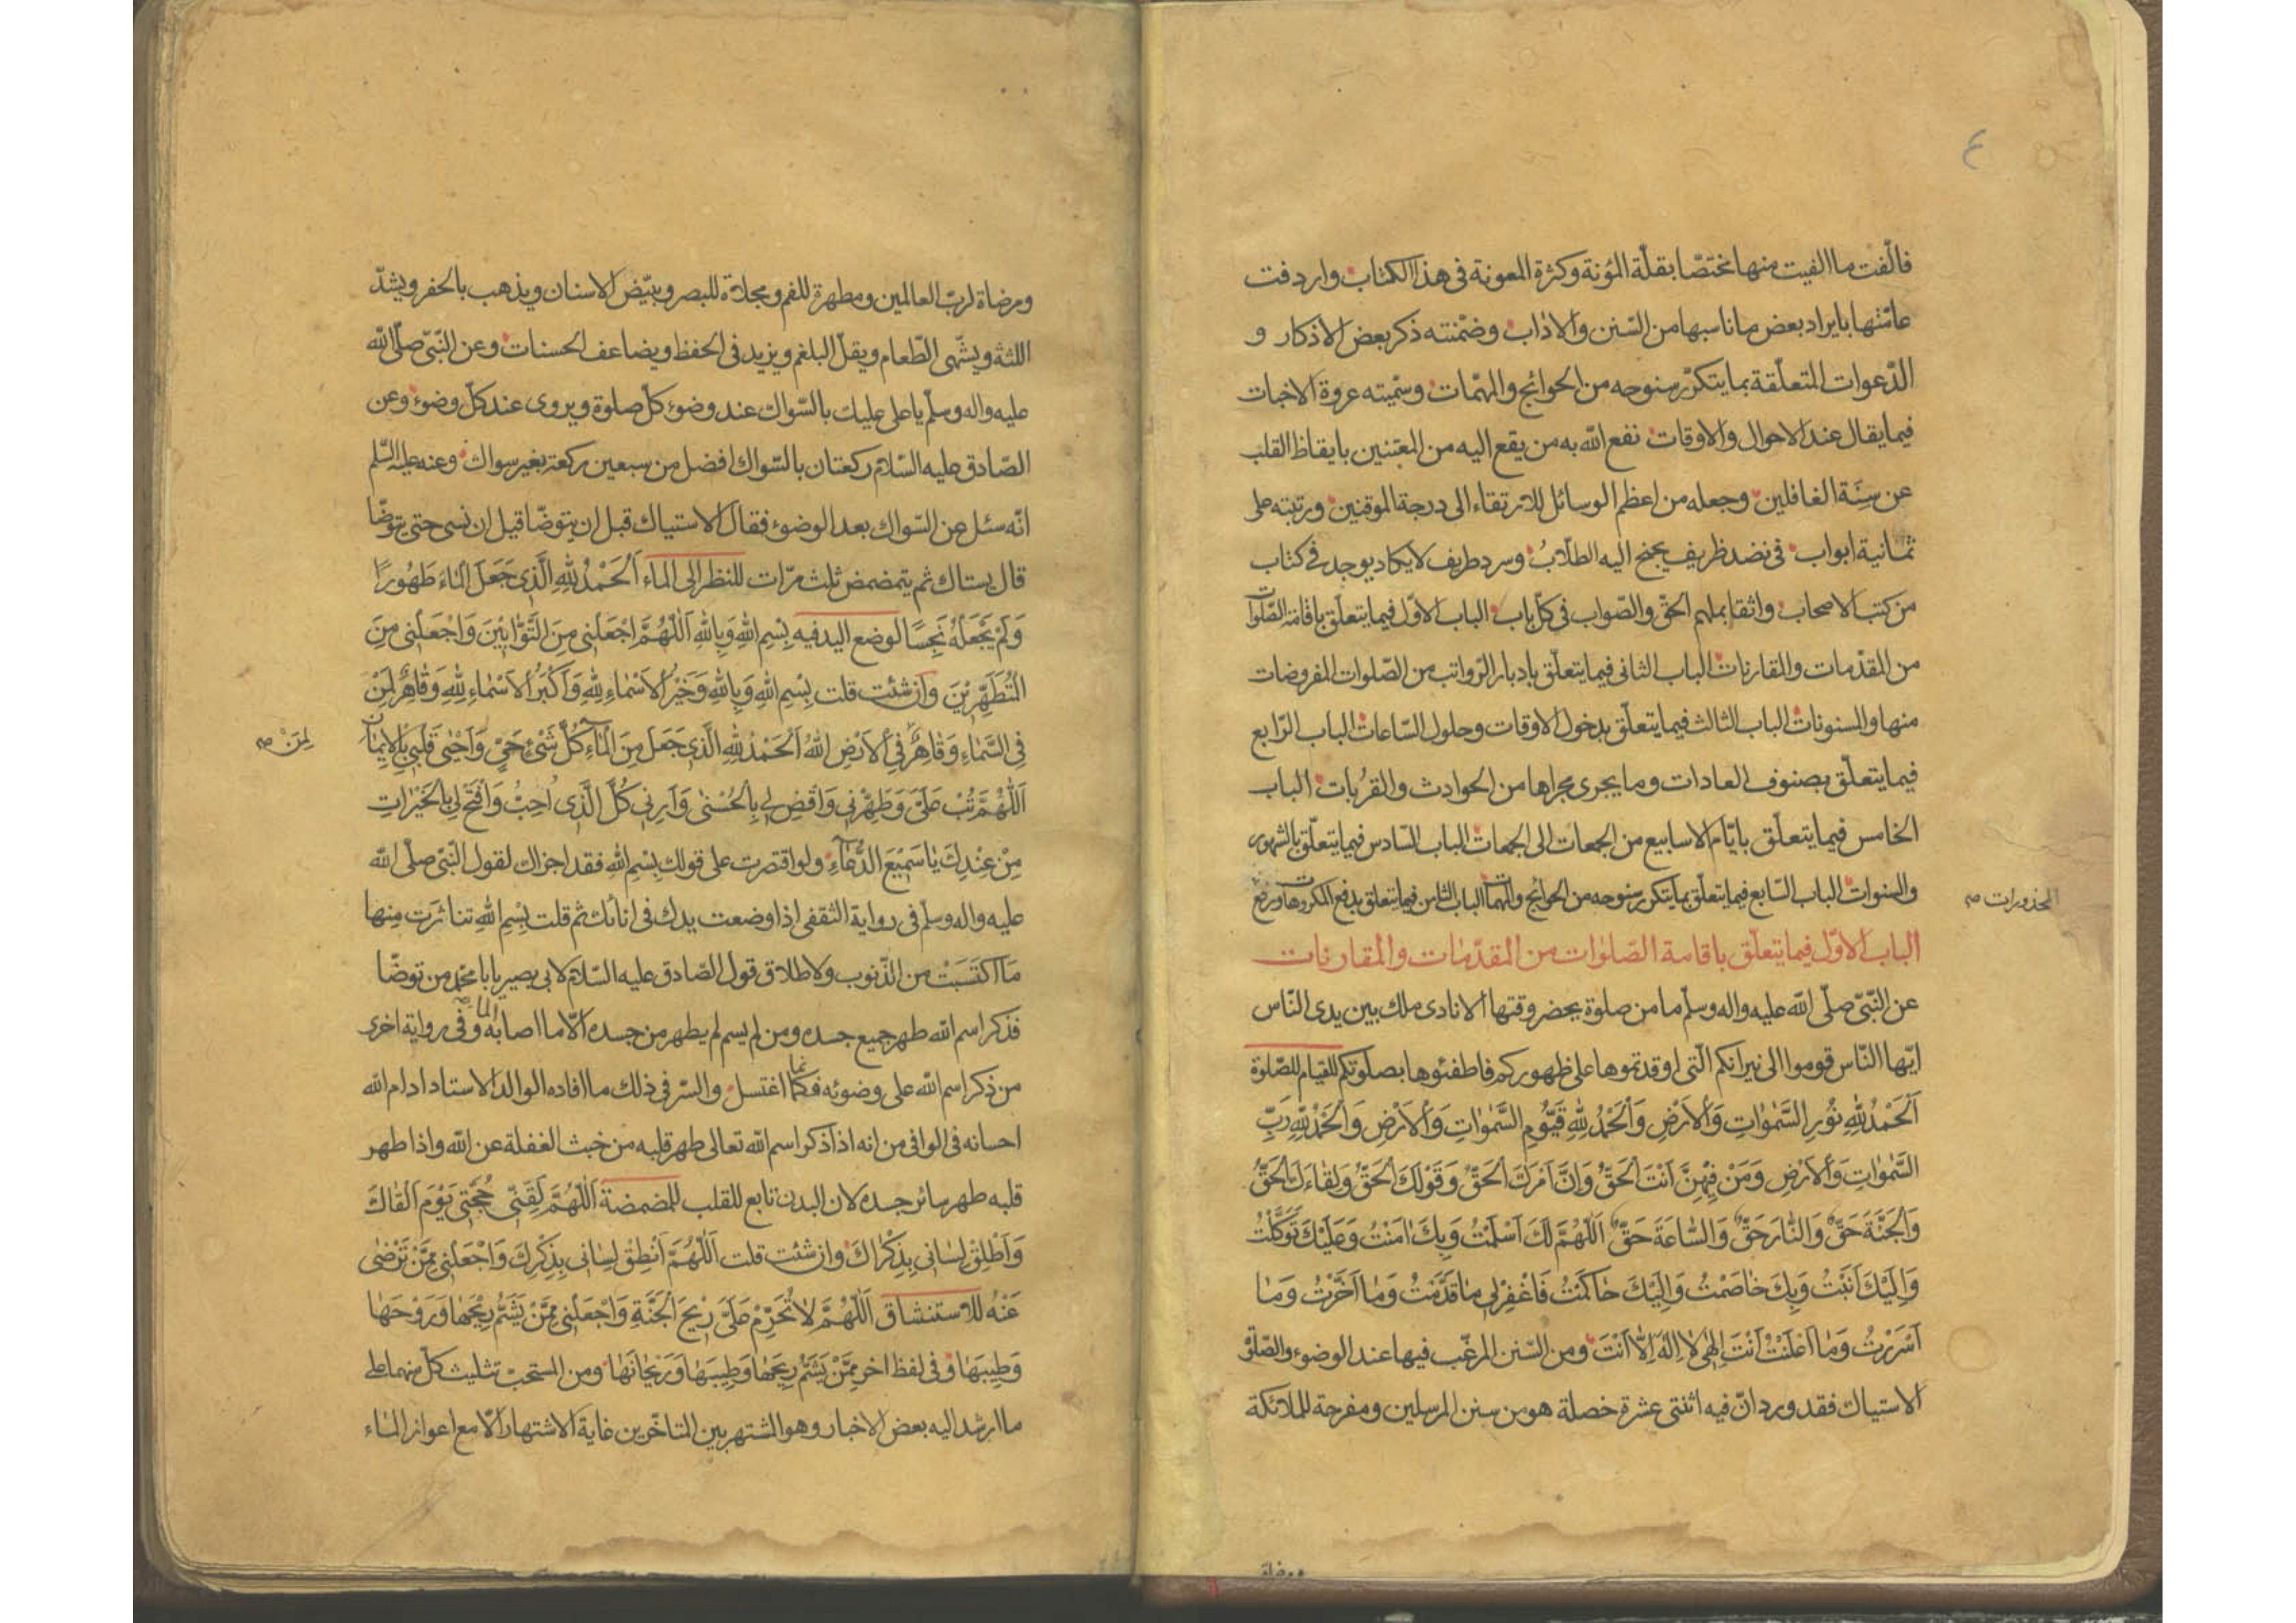 ٤
فالّفت ما الفيت منها مختصّا بقلّة المؤنة وكثرة المعونة فى هذا الكتاب واردفت
عامّتها بايراد بعض ما ناسبها من السّنن والاداب وضمّنته ذكر بعض الاذكار و
الدّعوات المتعلّقة بما يتكرّر سنوحه من الحوائج والمهمّات وسمّيته عروة الاخبات
فيما يقال عند الاحوال والاوقات نفع اللّه به من يقع اليه من المعتنين بايقاظ القلب
عن سِنَة الغافلين وجعله من اعظم الوسائل للارتقاء الى درجة الموقنين ورتبته على
ثمانية ابواب فى نضد ظريف يجنح اليه الطلّابُ وسرد طريف لا يكاد يوجد فى كتاب
من كتب الاصحاب واثقا بملهم الحقّ والصّواب فى كلّ باب الباب الاوّل فيما يتعلّق باقامة الصّلوات
من المقدّمات والمقارنات الباب الثانى فيما يتعلّق بادبار الرّواتب من الصّلوات المفروضات
منها والمسنونات الباب الثالث فيما يتعلّق بدخول الاوقات وحلول السّاعات الباب الرّابع
فيما يتعلّق بصنوف العادات وما يجرى مجراها من الحوادث والقربات الباب
الخامس فيما يتعلّق بايّام الاسابيع من الجمعات الى الجمعات الباب السّادس فيما يتعلّق بالشهور
والسنوات الباب السّابع فيما يتعلّق بما يتكرر سنوحه من الحوائج والمهمات الباب الثامن فيما يتعلق بدفع المكروهات ورفع
المحذورات صح
الباب الاوّل فيما يتعلّق باقامة الصّلوات من المقدّمات والمقارنات
عن النّبىّ صلّى اللّه عليه واله وسلّم ما من صلوة يحضر وقتها الا نادى ملك بين يدى النّاس
ايّها النّاس قوموا الى نيرانكم الّتى اوقدتموها على ظهوركم فاطفئوها بصلوتكم للقيام للصّلوة
اَلْحَمْدُ لِلّهِ نُورِ السَّمٰوٰاتِ وَالْاَرْضِ وَالْحَمْدُ لِلّهِ قَيُّومِ السَّمٰوٰاتِ وَالْاَرْضِ وَالْحَمْدُ لِلّهِ رَبِّ
السَّمٰوٰاتِ وَالْاَرْضِ وَمَنْ فِيْهِنَّ اَنْتَ الْحَقُّ وَاِنَّ اَمْرَكَ الْحَقُّ وَقَوْلَكَ الْحَقُّ وَلِقٰاءَكَ الْحَقُّ
وَالْجَنَّةَ حَقٌّ وَالنّٰارَ حَقٌّ وَالسّٰاعَةَ حَقٌّ اَللّٰهُمَّ لَكَ اَسْلَمْتُ وَبِكَ اٰمَنْتُ وَعَلَيْكَ تَوَكَّلْتُ
وَاِلَيْكَ اَنَبْتُ وَبِكَ خٰاصَمْتُ وَاِلَيْكَ حٰاكَمْتُ فَاغْفِرْ لِى مٰا قَدَّمْتُ وَمٰا اَخَّرْتُ وَمٰا
اَسْرَرْتُ وَمٰا اَعْلَنْتُ اَنْتَ اِلٰهِى لٰا اِلٰهَ اِلّٰا اَنْتَ ومن السّنن المرغّب فيها عند الوضوء والصّلوة
الاستياك فقد ورد انّ فيه اثنتى عشرة خصلة هو من سنن المرسلين ومفرحة للملائكة
ومرضاة
ومرضاة لربّ العالمين ومطهرة للفم ومجلاة للبصر ويبيّض الاسنان ويذهب بالحفر ويشدّ
اللثة ويشهّى الطّعام ويقلّ البلغم ويزيد فى الحفظ ويضاعف الحسنات وعن النّبىّ صلّى اللّه
عليه واله وسلّم يا على عليك بالسّواك عند وضوء كلّ صلوة ويروى عند كلّ وضوء وعن
الصّادق عليه السّلام ركعتان بالسّواك افضل من سبعين ركعة بغير سواك وعنه عليه السّلم
انّه سئل عن السّواك بعد الوضوء فقال الاستياك قبل ان يتوضّا قيل ان نسى حتى يتوضّا
قال يستاك ثم يتمضمض ثلث مرّات للنظر الى الماء اَلْحَمْدُ لِلّهِ الَّذِى جَعَلَ الْمٰاءَ طَهُورًا
وَلَمْ يَجْعَلْهُ نَجِسًا لوضع اليد فيه بِسْمِ اللّهِ وَبِاللّهِ اَللّٰهُمَّ اجْعَلْنِى مِنَ التَّوّٰابِيْنَ وَاجْعَلْنِى مِنَ
الْمُتَطَهِّرِيْنَ وان شئت قلت بِسْمِ اللّهِ وَبِاللّهِ وَخَيْرُ الْاَسْمٰاءِ لِلّهِ وَاَكْبَرُ الْاَسْمٰاءِ لِلّهِ وَقٰاهِرٌ لِمَنْ
فِى السَّمٰاءِ وَقٰاهِرٌ لِمَنْ صح فِى الْاَرْضِ اللّهُ اَلْحَمْدُ لِلّهِ الَّذِى جَعَلَ مِنَ الْمٰاءِ كُلَّ شَىْءٍ حَىٍّ وَاَحْيٰى قَلْبِى بِالْاِيْمٰانِ
اَللّٰهُمَّ تُبْ عَلَىَّ وَطَهِّرْنِى وَاقْضِ لِى بِالْحُسْنٰى وَاَرِنِى كُلَّ الَّذِى اُحِبُّ وَافْتَحْ لِى بِالْخَيْرٰاتِ
مِنْ عِنْدِكَ يٰا سَمِيْعَ الدُّعٰاءِ ولو اقتصرت على قولك بِسْمِ اللّهِ فقد اجزاك لقول النّبىّ صلّى اللّه
عليه واله وسلّم فى رواية الثقفى اذا وضعت يدك فى انائك ثم قلت بِسْمِ اللّهِ تناثرت مِنها
مَا اكتَسَبَتْ من الذّنوب ولاطلاق قول الصّادق عليه السّلام لابى بصير يا با محمّد من توضّا
فذكر اسم اللّه طهر جميع جسده ومن لم يسم لم يطهر من جسده الّا ما اصابه الماء وفى رواية اخرى
من ذكر اسم اللّه على وضوئه فكانّما اغتسل والسّر فى ذلك ما افاده الوالد الاستاد ادام اللّه
احسانه فى الوافى من انه اذا ذكر اسم اللّه تعالى طهر قلبه من خبث الغفلة عن اللّه واذا طهر
قلبه طهر سائر جسده لان البدن تابع للقلب للمضمضة اَللّٰهُمَّ لَقِّنِّى حُجَّتِى يَوْمَ اَلْقٰاكَ
وَاَطْلِقْ لِسٰانِى بِذِكْرٰاكَ وان شئت قلت اَللّٰهُمَّ اَنْطِقْ لِسٰانِى بِذِكْرِكَ وَاجْعَلْنِى مِمَّنْ تَرْضٰى
عَنْهُ للاستنشاق اَللّٰهُمَّ لٰا تُحَرِّمْ عَلَىَّ رِيْحَ الْجَنَّةِ وَاجْعَلْنِى مِمَّنْ يَشَمُّ رِيْحَهٰا وَرَوْحَهٰا
وَطِيبَهٰا وفى لفظ اخر مِمَّنْ يَشَمُّ رِيحَهٰا وَطِيبَهٰا وَرَيْحٰانَهٰا ومن المستحبّ تثليث كلّ منهما على
ما ارشد اليه بعض الاخبار وهو المشتهر بين المتاخّرين غاية الاشتهار الّا مع اعواز الماء